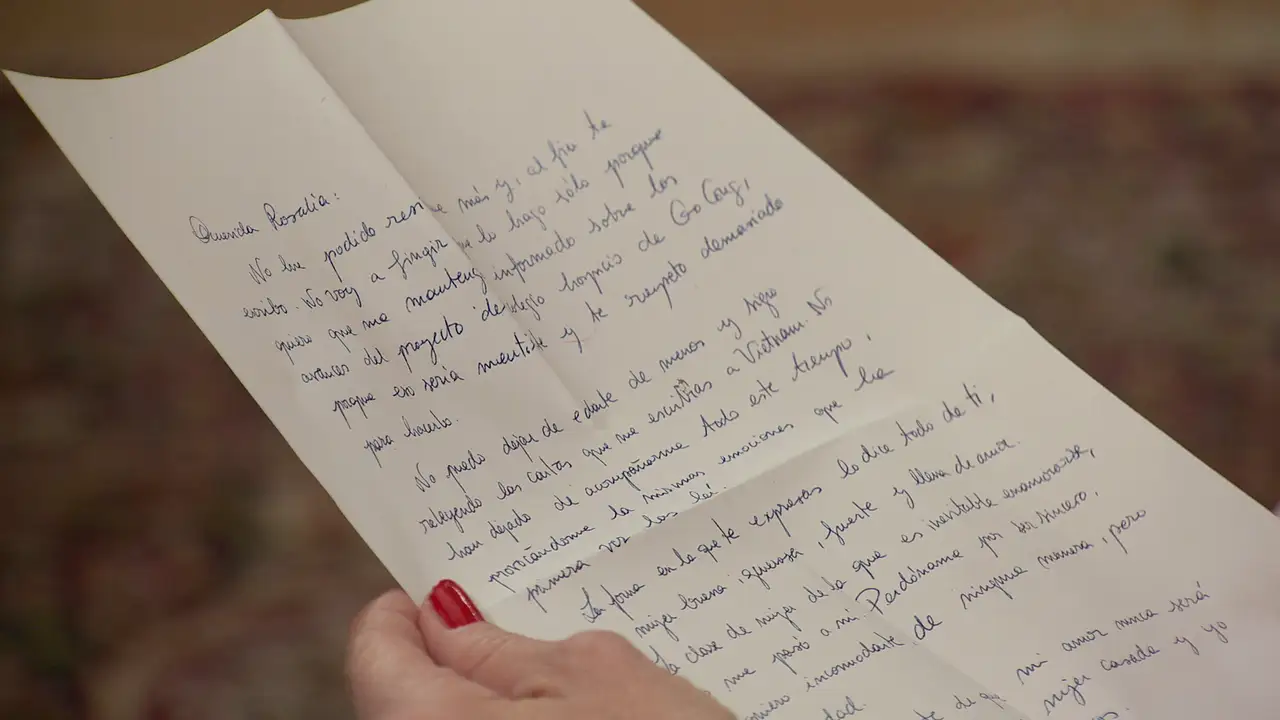 Querida Rosalía:
No he podido resi  e más y, al fin te
escribo. No voy a fingir  e lo hago sólo porque
quiero que me manteng informado sobre los
avances del proyecto de  legio hospicio de Go Cong,
porque eso sería mentirte y te respeto demasiado
para hacerlo.
No puedo dejar de echarte de menos y sigo
releyendo las cartas que me escribías a Vietnam. No
han dejado de acompañarme todo este tiempo,
provocándome la mismas emociones que la
primera vez las leí.
La forma en la que te expresas lo dice todo de ti,
mujer buena, generosa, fuerte y llena de amor.
la clase de mujer de la que es inevitable enamorarse,
me pasó a mí. Perdóname por ser sincero,
quiero incomodarte de ninguna manera, pero
dad.
te de que mi amor nunca será
mujer casada y yo